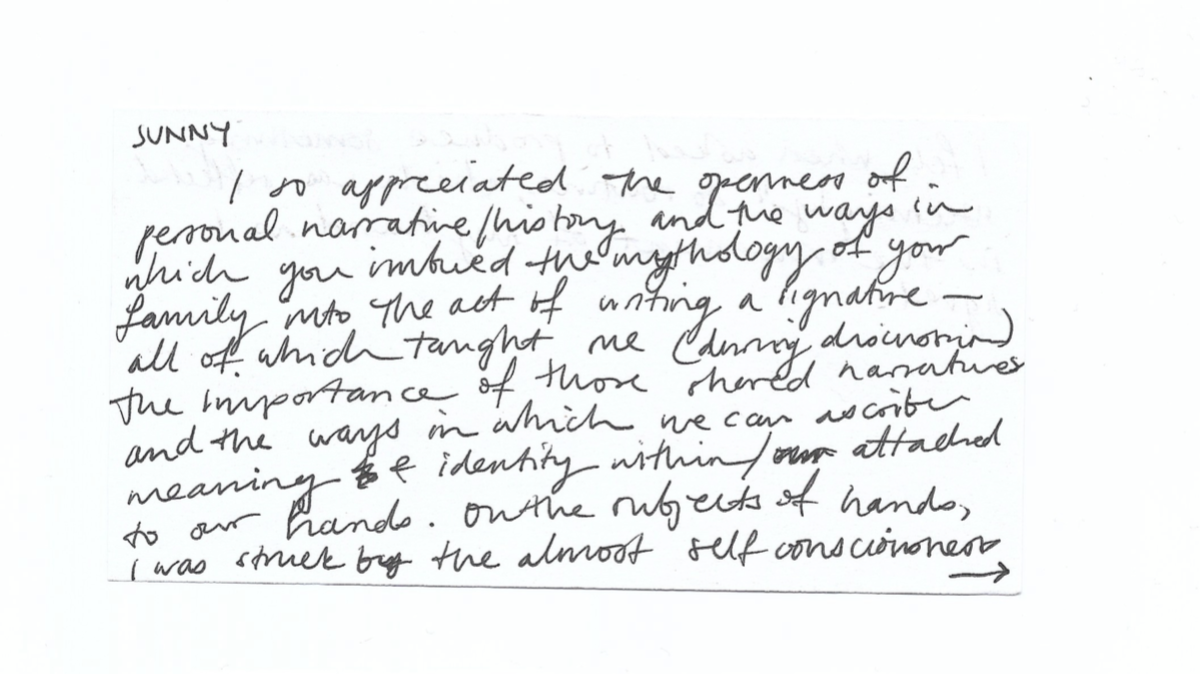 SUNNY
I so appreciated the openness of
personal narrative/history and the ways in
which you imbued the mythology of your
family into the act of writing a signature —
all of which taught me (during discussion)
the importance of those shared narratives
and the ways in which we can ascribe
meaning & identity within/ attached
to our hands. On the subjects of hands,
I was struck by the almost self consciousness
→